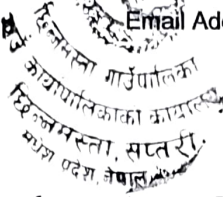 Email Ad
छिन्नमस्ता गाउँपालिका
गाउँ कार्यपालिकाको कार्यालय
छिन्नमस्ता, सप्तरी
मधेश प्रदेश, नेपाल